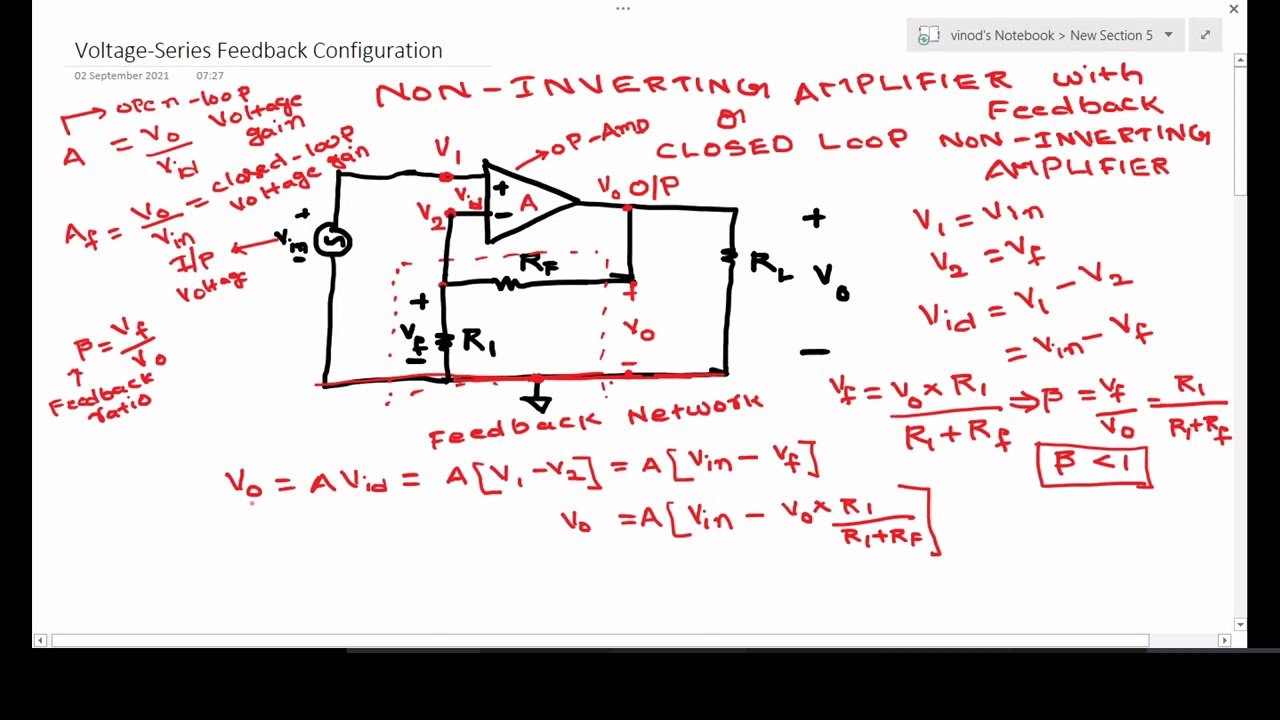 vinod's Notebook > New Section 5
Voltage-Series Feedback Configuration
02 September 2021 07:27
NON-INVERTING AMPLIFIER with
Feedback
or
CLOSED LOOP NON-INVERTING
AMPLIFIER
open-loop
voltage
gain
A = Vo/Vid
Af = Vo/Vin = closed-loop
voltage gain
I/P
voltage
β = Vf/Vo
Feedback
ratio
V1
OP-Amp
+
Vid
A
V2
-
Vo O/P
+
Vin
-
RF
RL
+
Vo
-
+
Vf
-
R1
+
Vo
-
Feedback Network
V1 = Vin
V2 = Vf
Vid = V1 - V2
= Vin - Vf
Vf = Vo × R1/R1+Rf ⇒ β = Vf/Vo = R1/R1+Rf
β < 1
Vo = A Vid = A[V1 - V2] = A[Vin - Vf]
Vo = A[Vin - Vo × R1/R1+RF]